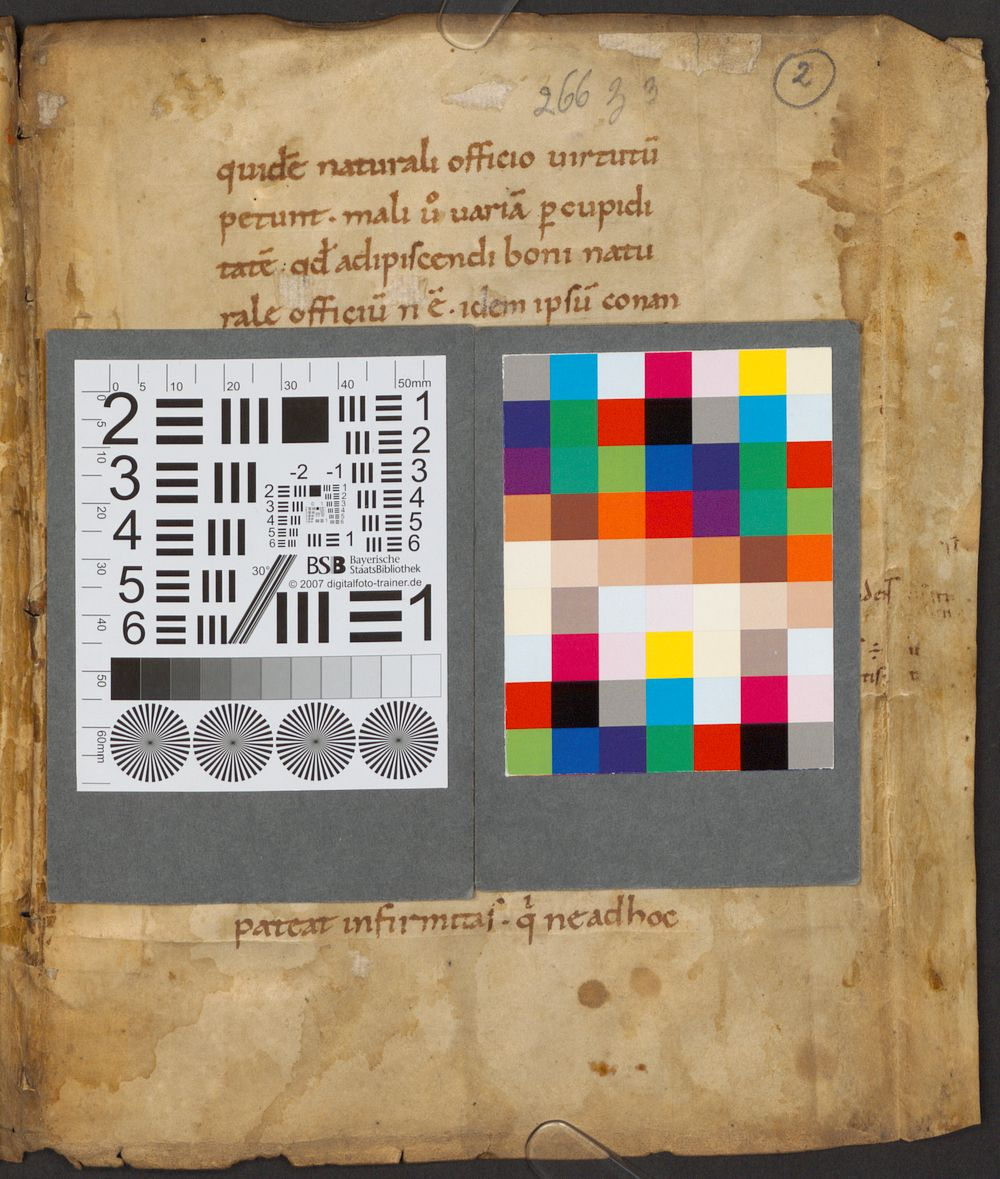 2
266 z 3
quidē naturali officio uirtutū
petunt · mali ů uariā ꝑcupidi
tatē · qd̄ adipiſcendi boni natu
rale officiū n̄ ē · idem ipſū conan
0 5 10 20 30 40 50mm
0 5 10 20 30 40 50 60mm
2 1
2
3 3
4 4
5
5 6
6 1
-2 -1
2 1
3 2
4 3
5 4
6 5
6
1
30°
BSB Bayerische
StaatsBibliothek
© 2007 digitalfoto-trainer.de
pateat infirmitaſ · q̇ neadhoc